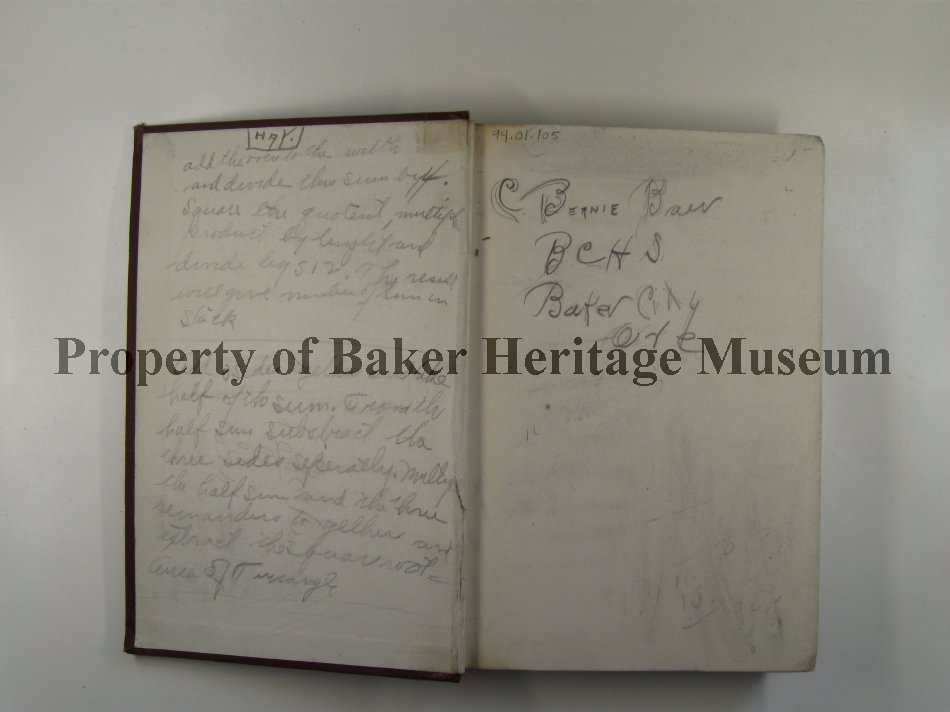 HAY.
add the over to the width
and divide this sum by 4.
Square the quotent, multiply
product by lenght and
divide by 512. The result
will give number tons in
stack
half of the sum. From the
half sum substract the
three sides seperatly. Multiply
the half sum and the three
remanders to gether and
extract the square root =
area of Triangle
94.01.105
C. Bernie Baer
BCHS
Baker City
Ore
Property of Baker Heritage Museum